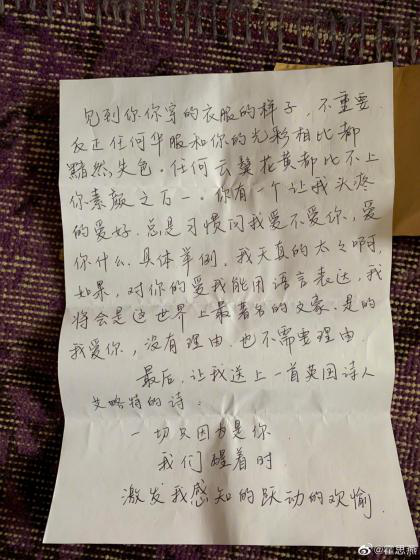 见到你你穿的衣服的样子,不重要
反正任何华服和你的光彩相比都
黯然失色。任何云鬓花黄都比不上
你素颜之万一。你有一个让我头疼
的爱好,总是习惯问我爱不爱你,爱
你什么,具体举例。我天真的太太啊,
如果,对你的爱我能用语言表达,我
将会是这世界上最著名的文豪。是的
我爱你,没有理由,也不需要理由.
最后,让我送上一首英国诗人
艾略特的诗:
一切只因为是你
我们醒着时
激发我感知的跃动的欢愉.
@霍思燕